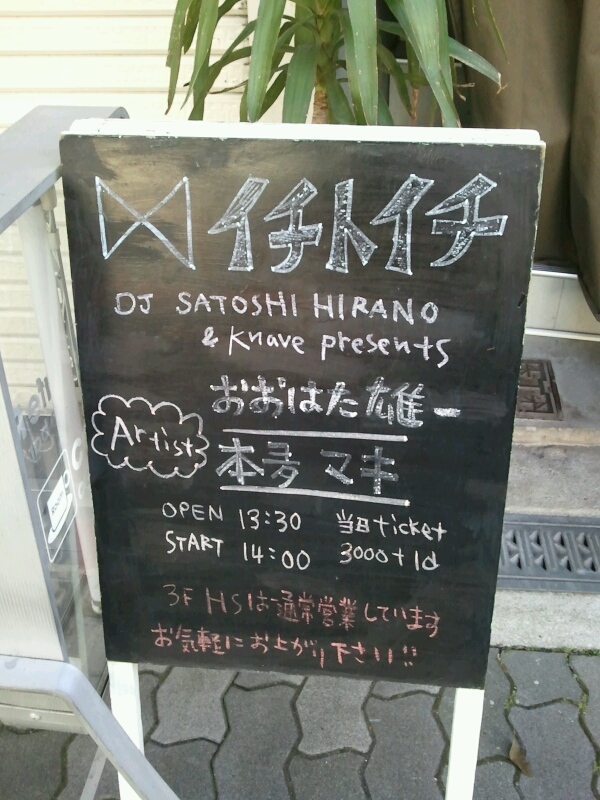 イチトイチ
DJ SATOSHI HIRANO
& Knave presents
おおはた雄一
Artist
本多 マキ
OPEN 13:30 当日ticket
START 14:00 3000+1d
3F HSは通常営業しています
お気軽にお上がり下さい!!